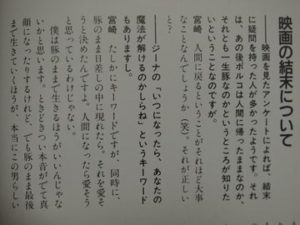 映画の結末について
映画を見たアンケートによれば、結末
に疑問を持った人が多かったようです。それ
は、あの後ポルコは人間に帰ったままなのか、
それとも一生豚なのかというところが知りた
いということなのですが。
宮崎、人間に戻るということがそれほど大事
なことなんでしょうか（笑）それが正しい
と？
──ジーナの「いつになったら、あなたの
魔法が解けるのかしらね」というキーワード
もありますし。
宮崎、たしかにキーワードですが、同時に、
豚のまま日差しの中に現れたら、それを愛そ
うと決めたんですよ。人間になったら愛そう
と思っているわけじゃない。
僕は豚のままで生きるほうがいいんじゃな
いかと思います。ときどきつい本音がでて真
顔になったりするけれど、でも豚のまま最後
まで生きていくほうが、本当にこの男らしい